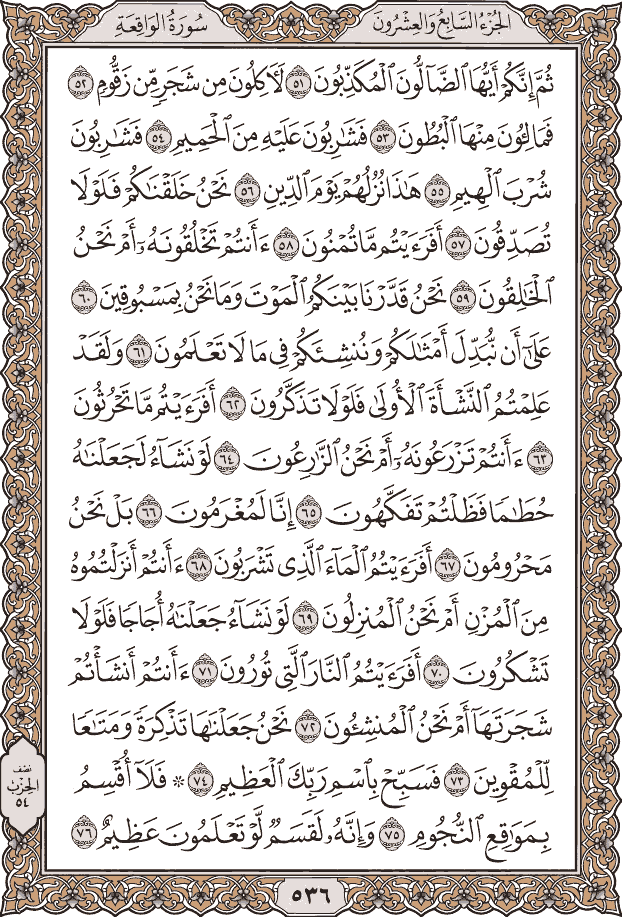 الجُزْءُ السَّابِعُ وَالعِشْرُونَ
سُورَةُ الوَاقِعَةِ
ثُمَّ إِنَّكُمْ أَيُّهَا ٱلضَّآلُّونَ ٱلْمُكَذِّبُونَ ٥١ لَأٓكِلُونَ مِن شَجَرٍ مِّن زَقُّومٍ ٥٢
فَمَالِـُٔونَ مِنْهَا ٱلْبُطُونَ ٥٣ فَشَٰرِبُونَ عَلَيْهِ مِنَ ٱلْحَمِيمِ ٥٤ فَشَٰرِبُونَ
شُرْبَ ٱلْهِيمِ ٥٥ هَٰذَا نُزُلُهُمْ يَوْمَ ٱلدِّينِ ٥٦ نَحْنُ خَلَقْنَٰكُمْ فَلَوْلَا
تُصَدِّقُونَ ٥٧ أَفَرَءَيْتُم مَّا تُمْنُونَ ٥٨ ءَأَنتُمْ تَخْلُقُونَهُۥٓ أَمْ نَحْنُ
ٱلْخَٰلِقُونَ ٥٩ نَحْنُ قَدَّرْنَا بَيْنَكُمُ ٱلْمَوْتَ وَمَا نَحْنُ بِمَسْبُوقِينَ ٦٠
عَلَىٰٓ أَن نُّبَدِّلَ أَمْثَٰلَكُمْ وَنُنشِئَكُمْ فِى مَا لَا تَعْلَمُونَ ٦١ وَلَقَدْ
عَلِمْتُمُ ٱلنَّشْأَةَ ٱلْأُولَىٰ فَلَوْلَا تَذَكَّرُونَ ٦٢ أَفَرَءَيْتُم مَّا تَحْرُثُونَ
٦٣ ءَأَنتُمْ تَزْرَعُونَهُۥٓ أَمْ نَحْنُ ٱلزَّٰرِعُونَ ٦٤ لَوْ نَشَآءُ لَجَعَلْنَٰهُ
حُطَٰمًا فَظَلْتُمْ تَفَكَّهُونَ ٦٥ إِنَّا لَمُغْرَمُونَ ٦٦ بَلْ نَحْنُ
مَحْرُومُونَ ٦٧ أَفَرَءَيْتُمُ ٱلْمَآءَ ٱلَّذِى تَشْرَبُونَ ٦٨ ءَأَنتُمْ أَنزَلْتُمُوهُ
مِنَ ٱلْمُزْنِ أَمْ نَحْنُ ٱلْمُنزِلُونَ ٦٩ لَوْ نَشَآءُ جَعَلْنَٰهُ أُجَاجًا فَلَوْلَا
تَشْكُرُونَ ٧٠ أَفَرَءَيْتُمُ ٱلنَّارَ ٱلَّتِى تُورُونَ ٧١ ءَأَنتُمْ أَنشَأْتُمْ
شَجَرَتَهَآ أَمْ نَحْنُ ٱلْمُنشِـُٔونَ ٧٢ نَحْنُ جَعَلْنَٰهَا تَذْكِرَةً وَمَتَٰعًا
لِّلْمُقْوِينَ ٧٣ فَسَبِّحْ بِٱسْمِ رَبِّكَ ٱلْعَظِيمِ ٧٤ ۞ فَلَآ أُقْسِمُ
بِمَوَٰقِعِ ٱلنُّجُومِ ٧٥ وَإِنَّهُۥ لَقَسَمٌ لَّوْ تَعْلَمُونَ عَظِيمٌ ٧٦
نِصْف
الحِزْبِ
٥٤
٥٣٦